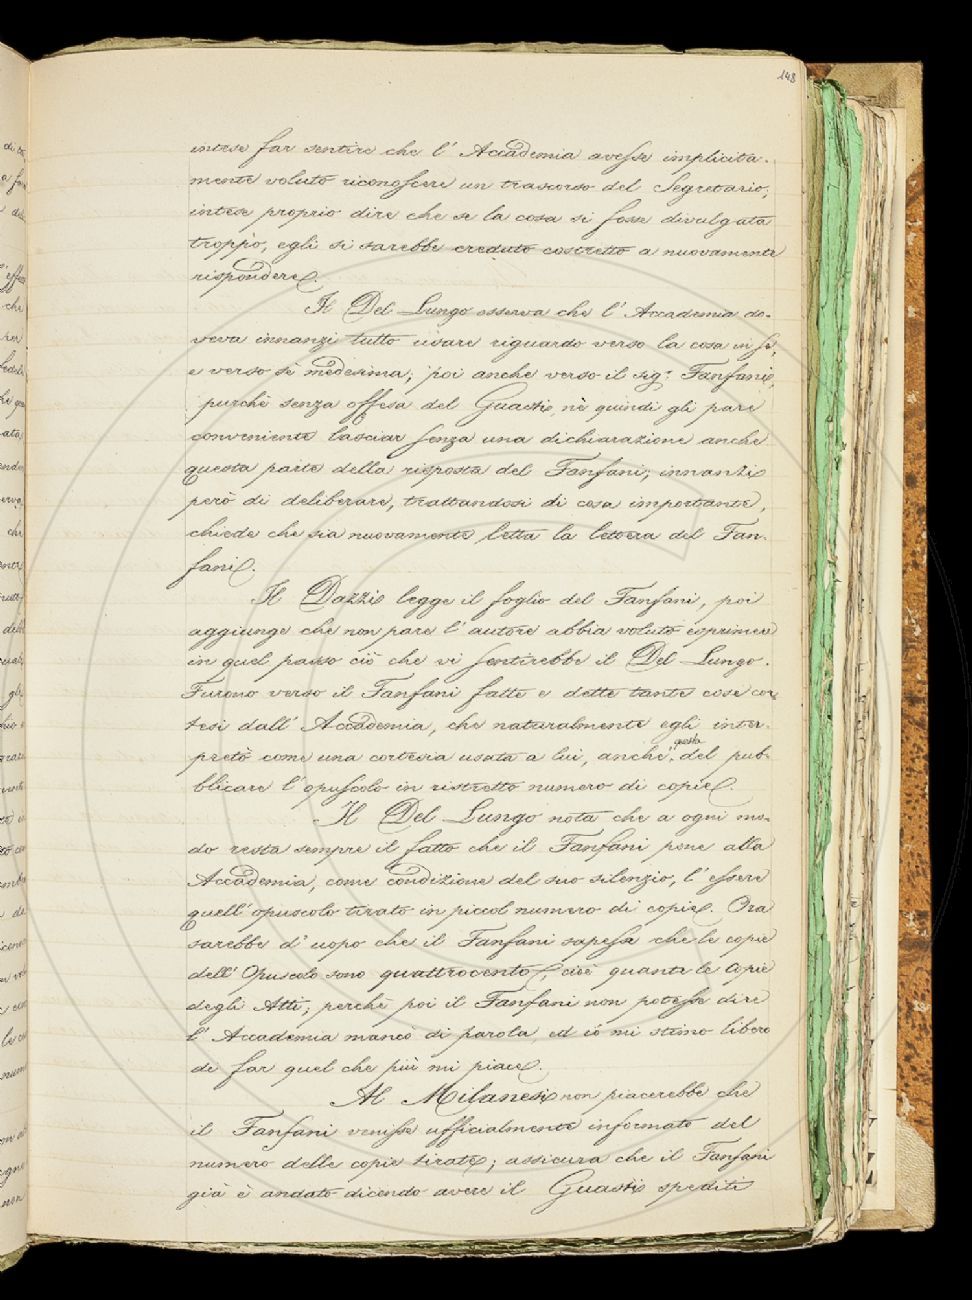 148
intese far sentire che l' Accademia avesse implicita-
mente voluto riconoscere un trascorso del Segretario;
intese proprio dire che se la cosa si fosse divulgata
troppo, egli si sarebbe creduto costretto a nuovamente
rispondere.
Il Del Lungo osserva che l' Accademia do-
veva innanzi tutto usare riguardo verso la cosa in se,
e verso sè medesima; poi anche verso il sig.r Fanfani,
purchè senza offesa del Guasti, nè quindi gli pare
conveniente lasciar senza una dichiarazione anche
questa parte della risposta del Fanfani; innanzi
però di deliberare, trattandosi di cosa importante,
chiede che sia nuovamente letta la lettera del Fan-
fani.
Il Dazzi legge il foglio del Fanfani, poi
aggiunge che non pare l' autore abbia voluto esprimere
in quel passo ciò che vi sentirebbe il Del Lungo.
Furono verso il Fanfani fatte e dette tante cose cor-
tesi dall' Accademia, che naturalmente egli inter-
pretò come una cortesia usata a lui, anche questa del pub-
blicare l' opuscolo in ristretto numero di copie.
Il Del Lungo nota che a ogni mo-
do resta sempre il fatto che il Fanfani pone alla
Accademia, come condizione del suo silenzio, l' essere
quell' opuscolo tirato in piccol numero di copie. Ora
sarebbe d' uopo che il Fanfani sapesse che le copie
dell' Opuscolo sono quattrocento, cioè quante le copie
degli Atti; perchè poi il Fanfani non potesse dire
l' Accademia mancò di parola, ed io mi stimo libero
di far quel che più mi piace.
Al Milanesi non piacerebbe che
il Fanfani venisse ufficialmente informato del
numero delle copie tirate; assicura che il Fanfani
già è andato dicendo avere il Guasti spediti